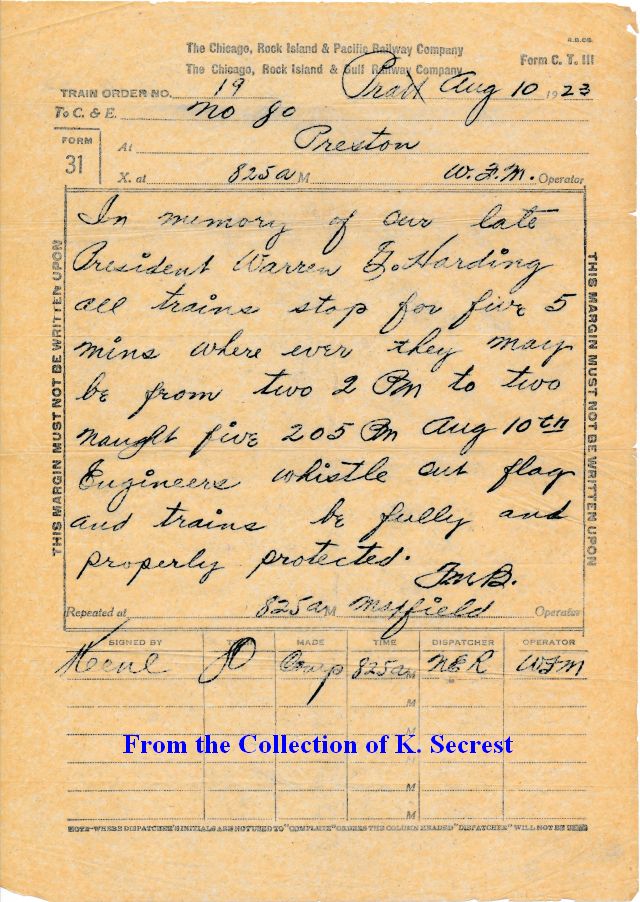 R.B.CO.
The Chicago, Rock Island & Pacific Railway Company
The Chicago, Rock Island & Gulf Railway Company
Form C. T. 111
Pratt Aug 10 1923
TRAIN ORDER NO. 19
To C. & E. No 80
FORM
31
At Preston
X. at 825a M W.F.M. Operator
THIS MARGIN MUST NOT BE WRITTEN UPON
In memory of our late
President Warren G. Harding
all trains stop for five 5
mins where ever they may
be from two 2 Pm to two
naught five 205 Pm Aug 10th
Engineers whistle out flag
and trains be fully and
properly protected.
THIS MARGIN MUST NOT BE WRITTEN UPON
Repeated at 825a M Maxfield Operator
SIGNED BY MADE TIME DISPATCHER OPERATOR
Comp 825a M NER WFM
M
M
M
M
M
From the Collection of K. Secrest
NOTE-WHERE DISPATCHER'S INITIALS ARE NOT USED TO "COMPLETE" ORDERS THE COLUMN HEADED "DISPATCHER" WILL NOT BE USED